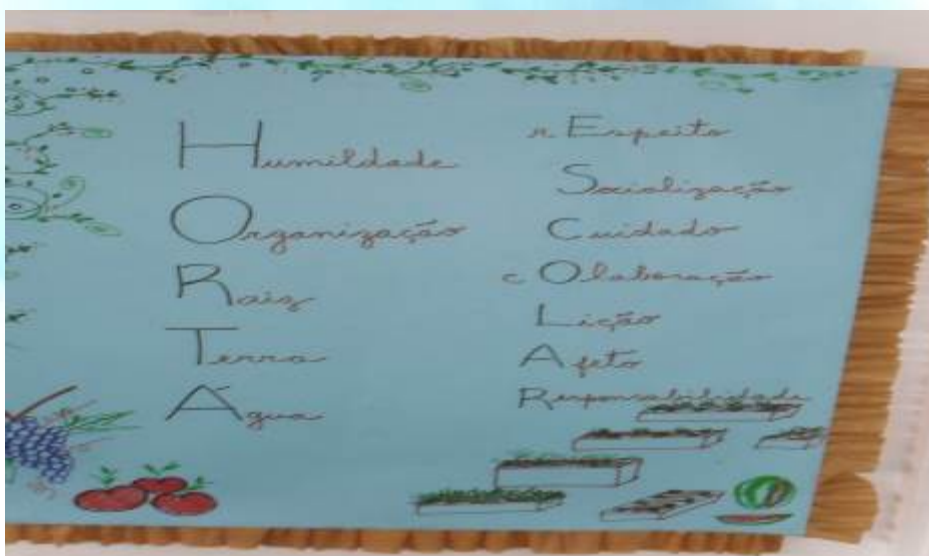 Humildade
Organização
Raiz
Terra
Água
rEspeito
Socialização
Cuidado
cOlaboração
Lição
Afeto
Responsabilidade